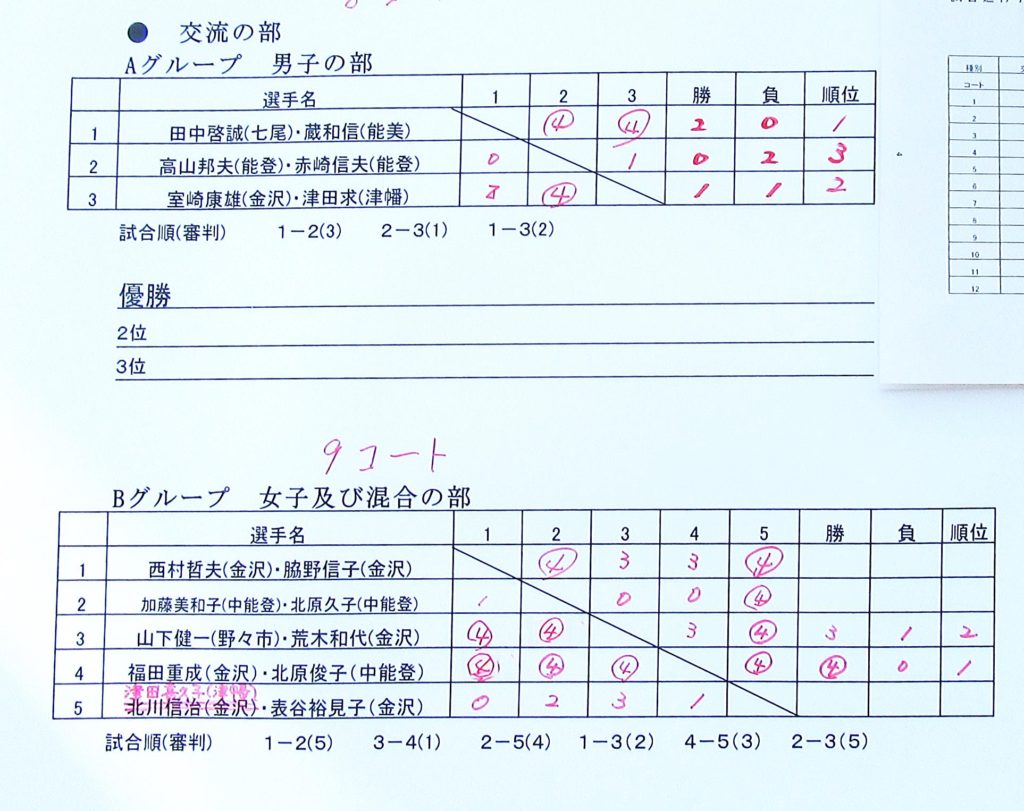 ● 交流の部
Aグループ 男子の部
選手名 1 2 3 勝 負 順位
1 田中啓誠(七尾)・蔵和信(能美) ④ ④ 2 0 1
2 高山邦夫(能登)・赤崎信夫(能登) 0 1 0 2 3
3 室崎康雄(金沢)・津田求(津幡) ④ 1 1 2
試合順(審判) 1－2(3) 2－3(1) 1－3(2)
優勝
2位
3位
9コート
Bグループ 女子及び混合の部
選手名 1 2 3 4 5 勝 負 順位
1 西村哲夫(金沢)・脇野信子(金沢) ④ 3 3 ④
2 加藤美和子(中能登)・北原久子(中能登) 1 0 0 ④
3 山下健一(野々市)・荒木和代(金沢) ④ ④ 3 ④ 3 1 2
4 福田重成(金沢)・北原俊子(中能登) ④ ④ ④ ④ 0 1
津田喜久子(津幡)
5 北川信治(金沢)・表谷裕見子(金沢) 0 2 3 1
試合順(審判) 1－2(5) 3－4(1) 2－5(4) 1－3(2) 4－5(3) 2－3(5)
種別
コート
1
2
3
4
5
6
7
8
9
10
11
12